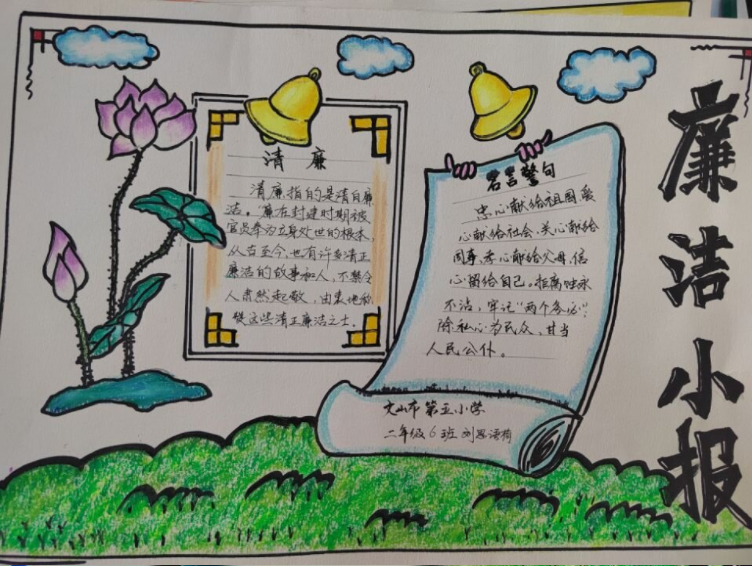 廉洁小报
清廉
清廉指的是清白廉
洁。廉在封建时期被
官员奉为立身处世的根本,
从古至今,也有许多清正
廉洁的故事和人,不禁令
人肃然起敬,由衷地敬
佩这些清正廉洁之士。
名言警句
忠心献给祖国,爱
心献给社会,关心献给
同事,孝心献给父母,信
心留给自己。拒腐蚀永
不沾,牢记"两个务必"
除私心为民众,甘当
人民公仆。
文山市第五小学
二年级6班 刘思语